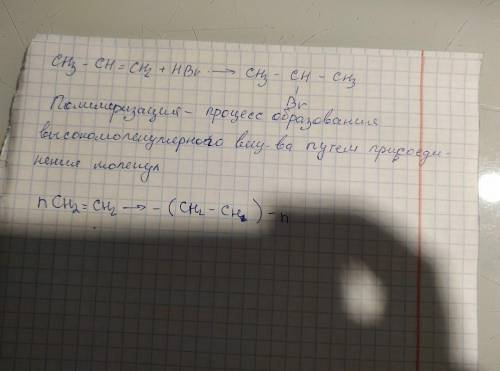 CH3 - CH = CH2 + HBr → CH3 - CH - CH3
Br
Полимеризация - процесс образования
высокомолекулярного вещ-ва путем присоеди-
нения молекул
nCH2 = CH2 → - (CH2 - CH2) - n